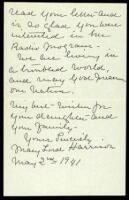 read your letter and
is so glad you were
interested in her
Radio Program.
We are living in
a troubled world,
and may God bless
our Nation.
My best wishes for
your daughter and
your family.
Yours Sincerely
Mary Lord Harrison
May 2nd 1941